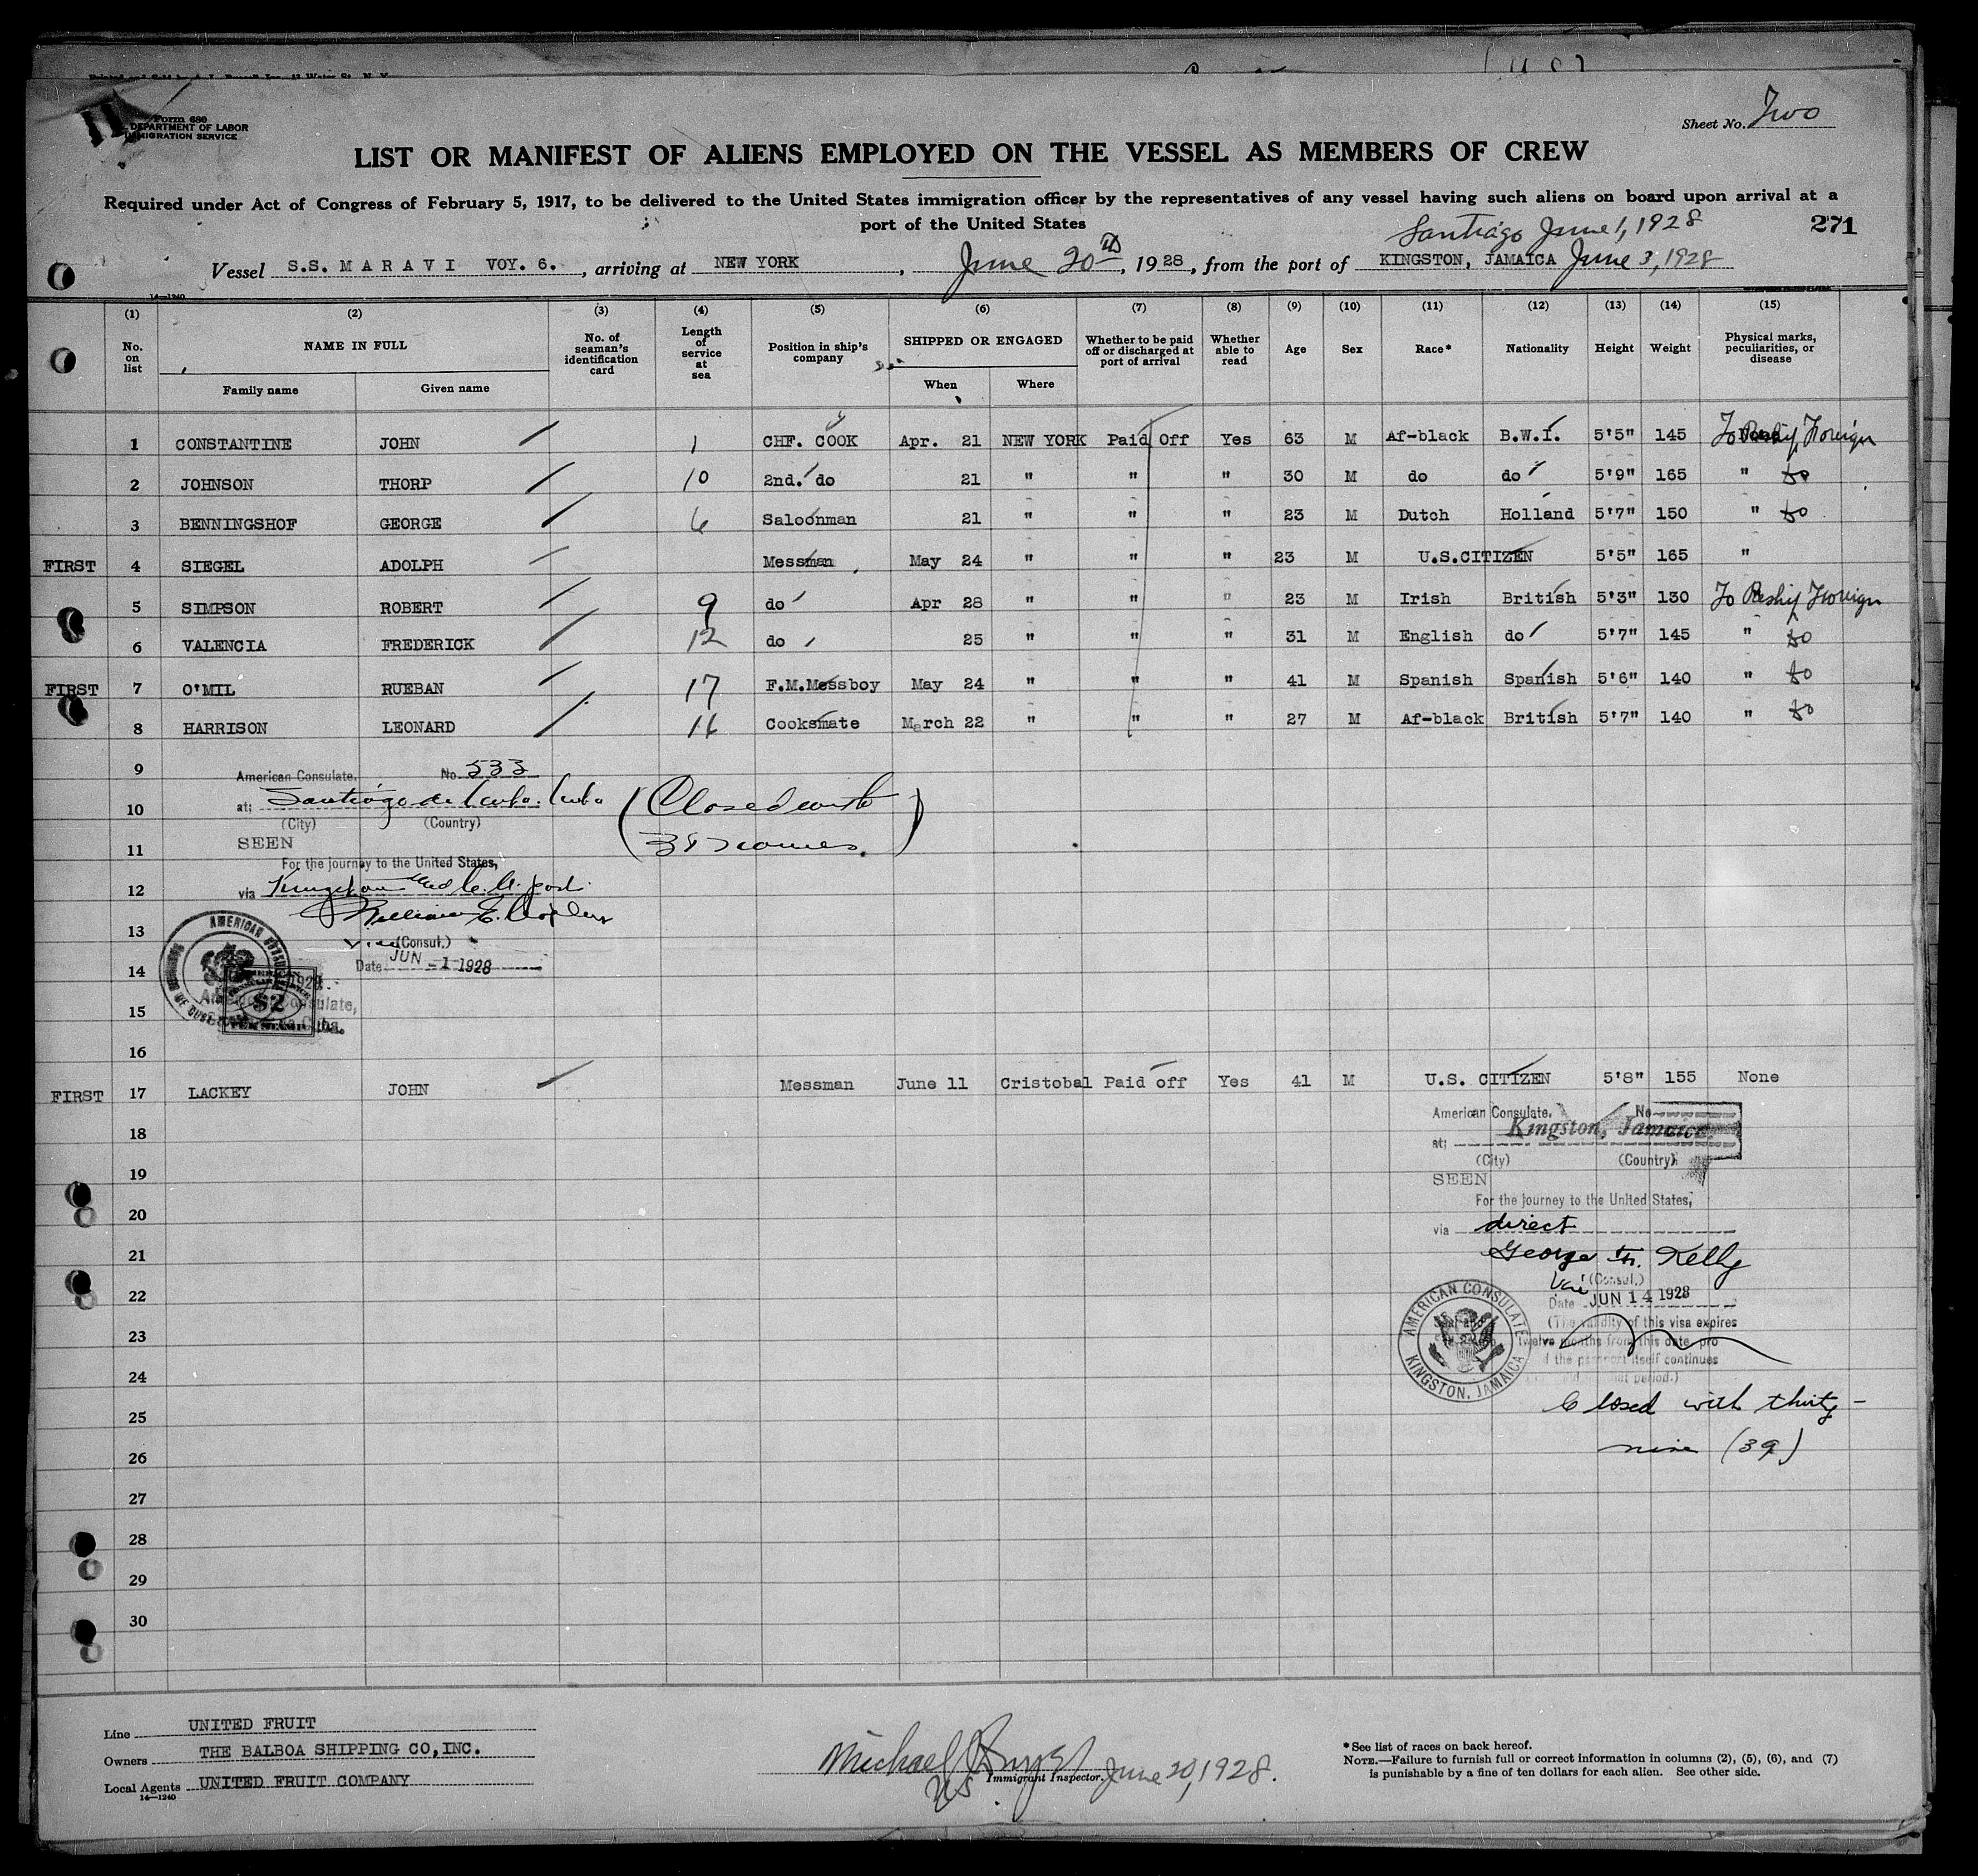 Form 680
DEPARTMENT OF LABOR
IMMIGRATION SERVICE
Sheet No. Two
LIST OR MANIFEST OF ALIENS EMPLOYED ON THE VESSEL AS MEMBERS OF CREW
Required under Act of Congress of February 5, 1917, to be delivered to the United States immigration officer by the representatives of any vessel having such aliens on board upon arrival at a
port of the United States
271
Santiago June 1, 1928
Vessel S.S. MARAVI VOY. 6., arriving at NEW YORK, June 20th, 1928, from the port of KINGSTON, JAMAICA June 3, 1928
14—1240
(1) (2) (3) (4) (5) (6) (7) (8) (9) (10) (11) (12) (13) (14) (15)
No. on list NAME IN FULL No. of seaman's identification card Length of service at sea Position in ship's company SHIPPED OR ENGAGED Whether to be paid off or discharged at port of arrival Whether able to read Age Sex Race* Nationality Height Weight Physical marks, peculiarities, or disease
Family name Given name When Where
1 CONSTANTINE JOHN 1 CHF. COOK Apr. 21 NEW YORK Paid Off Yes 63 M Af-black B.W.I. 5'5" 145 To Reship Foreign
2 JOHNSON THORP 10 2nd. do 21 " " " 30 M do do 5'9" 165 " do
3 BENNINGSHOF GEORGE 6 Saloonman 21 " " " 23 M Dutch Holland 5'7" 150 " do
FIRST 4 SIEGEL ADOLPH Messman May 24 " " " 23 M U.S.CITIZEN 5'5" 165 "
5 SIMPSON ROBERT 9 do Apr 28 " " " 23 M Irish British 5'3" 130 To Reship Foreign
6 VALENCIA FREDERICK 12 do 25 " " " 31 M English do 5'7" 145 " do
FIRST 7 O'MIL RUEBAN 17 F.M.Messboy May 24 " " " 41 M Spanish Spanish 5'6" 140 " do
8 HARRISON LEONARD 11 Cooksmate March 22 " " " 27 M Af-black British 5'7" 140 " do
9
American Consulate, No. 533
10
at: Santiago de Cuba. Cuba
(City) (Country)
(Closed with
38 names.)
11
SEEN
For the journey to the United States,
12
via Kingston and C.A. ports
William E.
13
Vice (Consul.)
Date JUN -1 1928
14
AMERICAN
$2
15
American Consulate,
16
FIRST 17 LACKEY JOHN Messman June 11 Cristobal Paid off Yes 41 M U.S. CITIZEN 5'8" 155 None
American Consulate, No.
18
at: Kingston, Jamaica.
(City) (Country)
19
SEEN
For the journey to the United States,
20
via direct
21
George Kelly
22
Vice (Consul.)
Date JUN 14 1928
AMERICAN CONSULATE
KINGSTON, JAMAICA
23
(The validity of this visa expires
twelve months from this date, pro
the passport itself continues
period.)
24
25
Closed with thirty-
26
nine (39)
27
28
29
30
Line UNITED FRUIT
Owners THE BALBOA SHIPPING CO,INC.
Local Agents UNITED FRUIT COMPANY
14—1240
Michael
US Immigrant Inspector. June 20, 1928.
*See list of races on back hereof.
NOTE.—Failure to furnish full or correct information in columns (2), (5), (6), and (7)
is punishable by a fine of ten dollars for each alien. See other side.